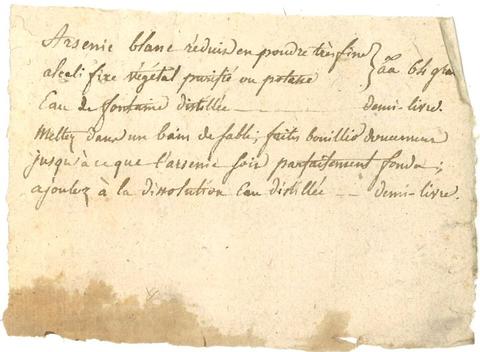 Arsenic blanc réduis en poudre très fine
alcali fixe végétal purifié ou potasse } āā 64 gra
Eau de fontaine distillée — demi-livre
Mettez dans un bain de sable; faites bouillir doucemen
jusqu'à ce que l'arsenic soit parfaitement fondu;
ajoutez à la dissolution Eau distillée — demi-livre.